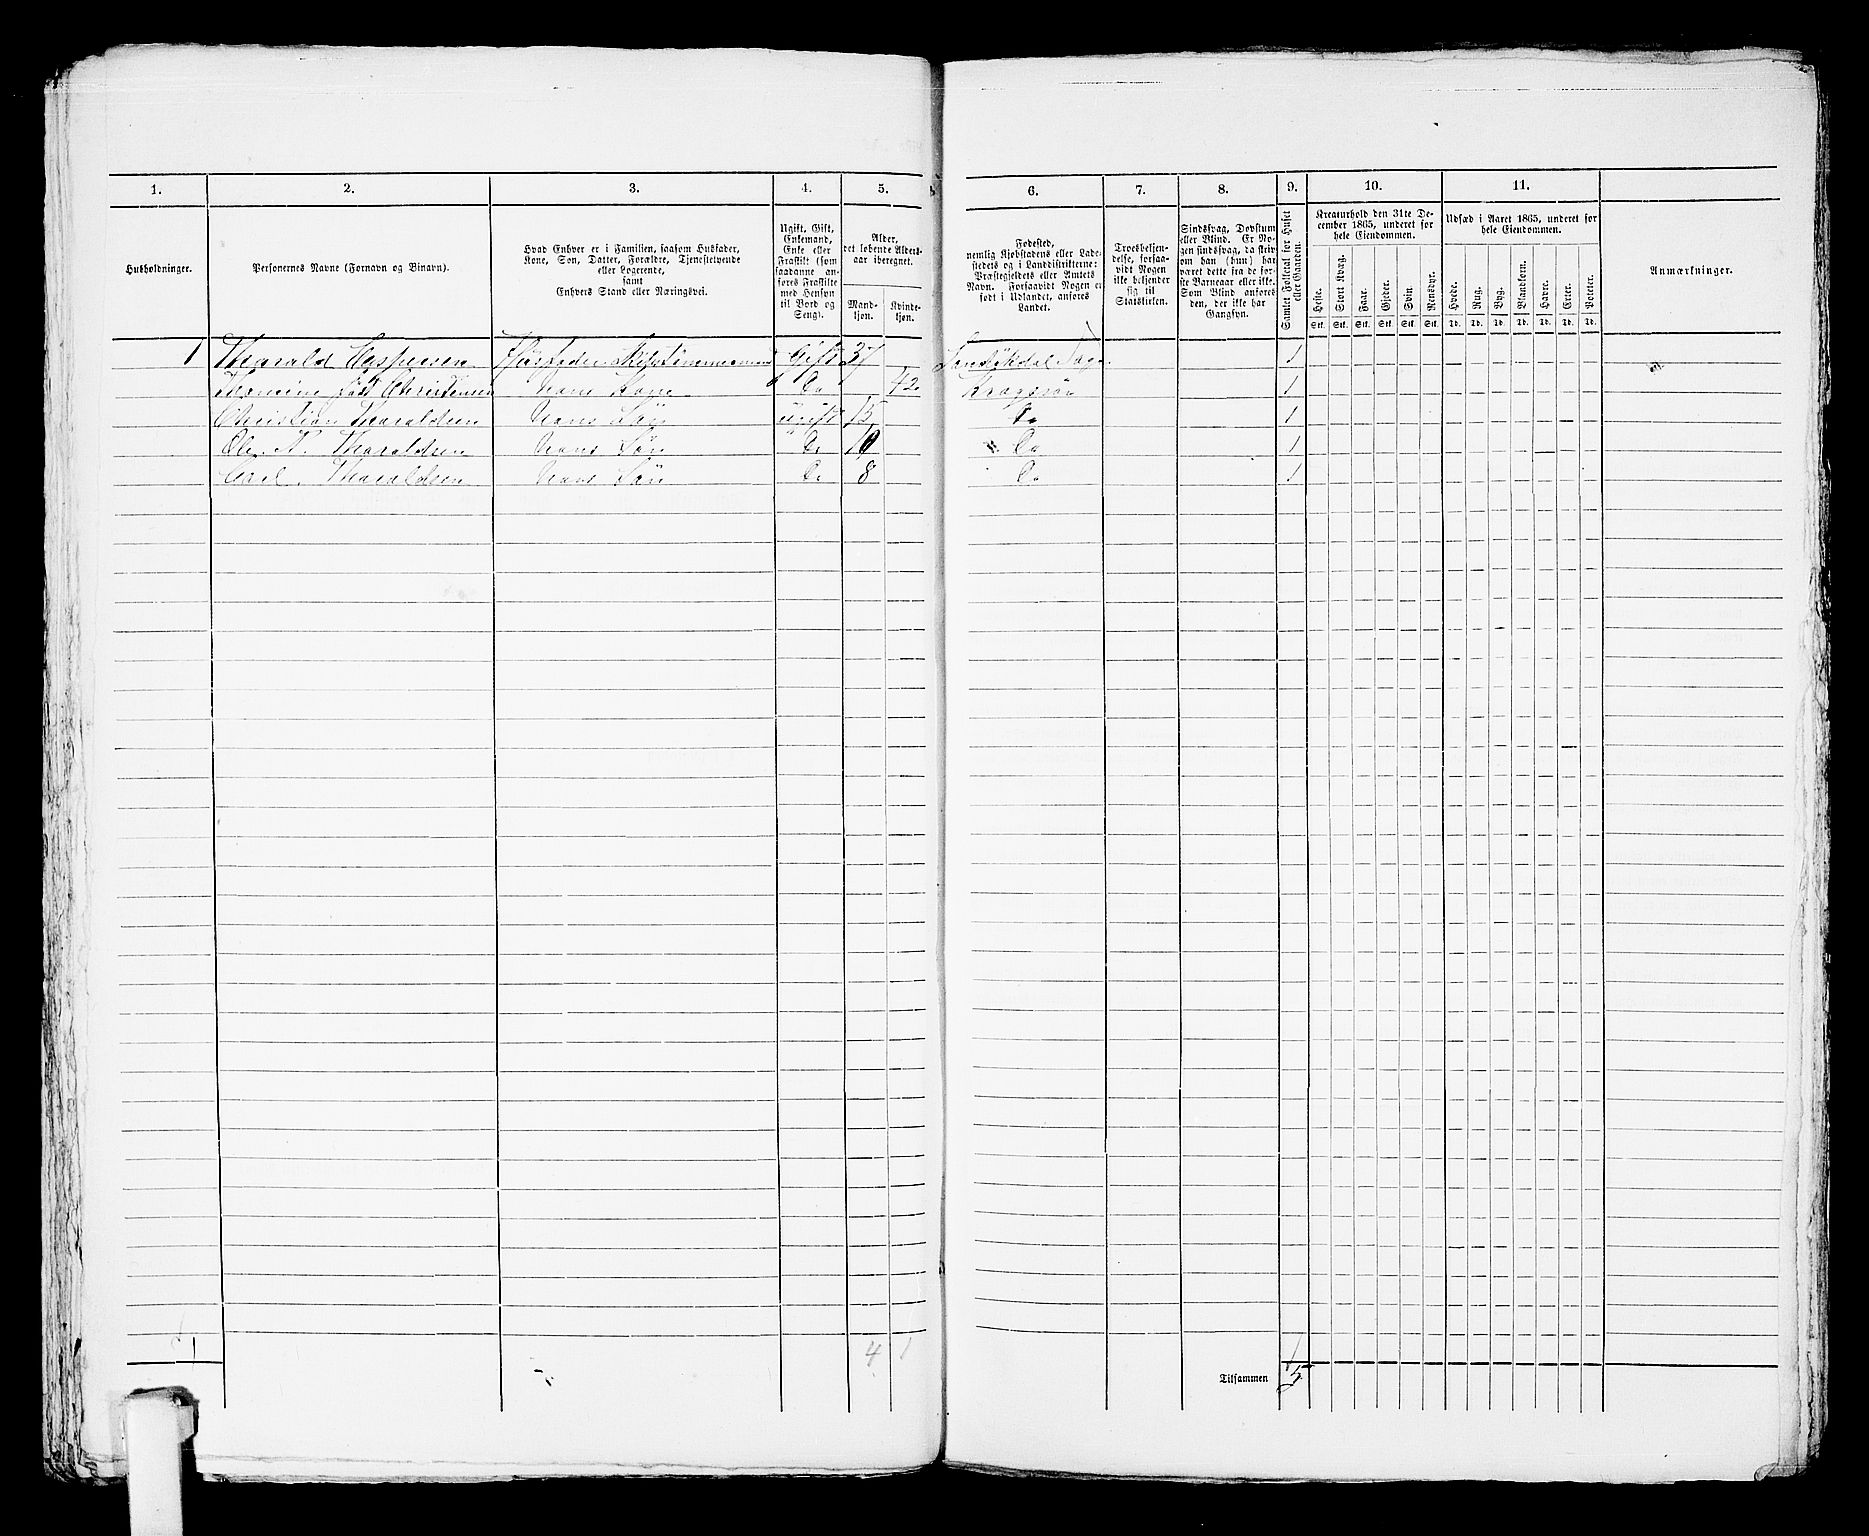 1. 2. 3. 4. 5. 6. 7. 8. 9. 10. 11.
Husholdninger.
Personernes Navne (Fornavn og Binavn).
Hvad Enhver er i Familien, saasom Husfader,
Kone, Søn, Datter, Forældre, Tjenestetyende
eller Logerende,
samt
Enhvers Stand eller Næringsvei.
Ugift, Gift,
Enkemand,
Enke eller
Fraskilt (som
saadanne an-
føres Fraskilte
med Hensyn
til Bord og
Seng).
Alder,
det løbende Alders-
aar iberegnet.
Mand-
kjøn.
Kvinde-
kjøn.
Fødested,
nemlig Kjøbstadens eller Lade-
stedets og i Landdistrikterne:
Præstegjeldets eller Amtets
Navn. Forsaavidt Nogen er
født i Udlandet, anføres
Landet.
Troesbekjen-
delse, forsaa-
vidt Nogen
ikke bekjender
sig til
Statskirken.
Sindssvag, Døvstum
eller Blind. Er No-
gen sindssvag, da skriv
om han (hun) har
været dette fra de før-
ste Barneaar eller ikke.
Som Blind anføres
den, der ikke har
Gangsyn.
Samlet Folketal for Huset
eller Gaarden.
Kreaturhold den 31te De-
cember 1865, underet for
hele Eiendommen.
Heste. Stort Kvæg. Faar. Gjeder. Svin. Rensdyr.
Stk. Stk. Stk. Stk. Stk. Stk.
Udsæd i Aaret 1865, underet for
hele Eiendommen.
Hvede. Rug. Byg. Blandkorn. Havre. Erter. Poteter.
Td. Td. Td. Td. Td. Td. Td.
Anmærkninger.
1 Tharald Caspersen Husfader Skibstimmermand Gift 37 Sandøkedal 1
Thomine født Christensen Hans Kone Do 42 Kragerør 1
Christian Tharaldsen Hans Søn ugift 15 Do 1
Ole N. Tharaldsen Hans Søn Do 10 Do 1
Carl Tharaldsen Hans Søn Do 8 Do 1
1 4 1
Tilsammen 5